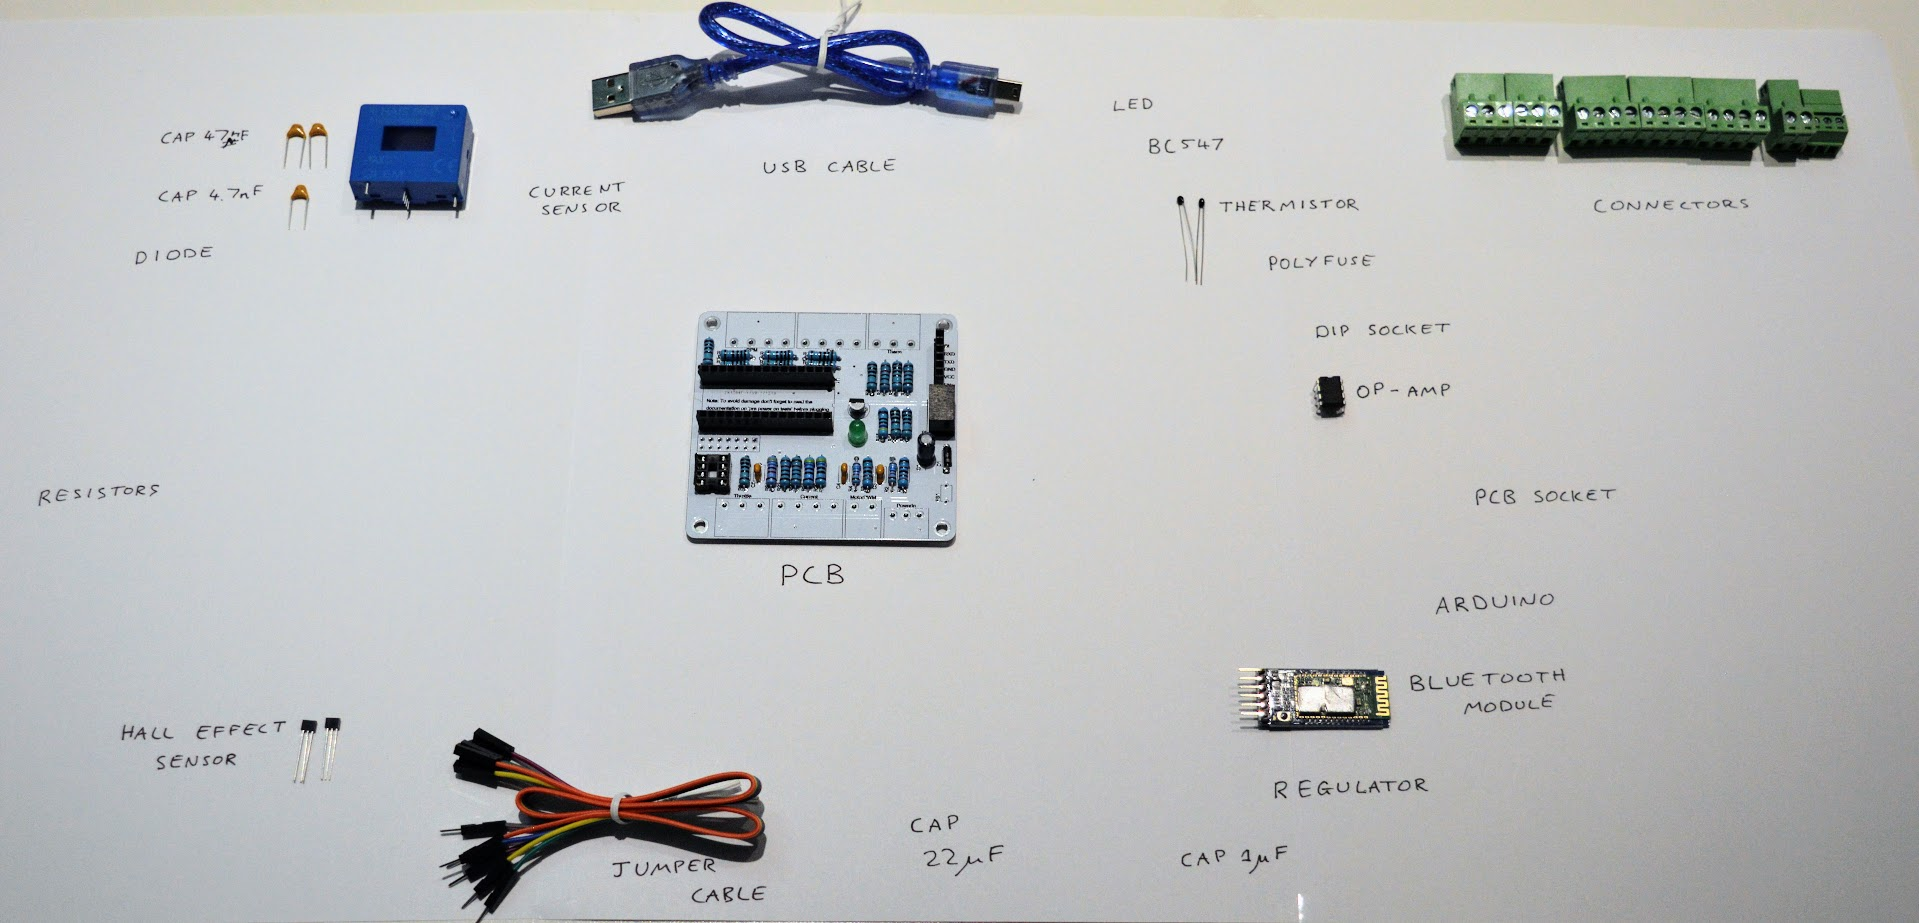 CAP 47nF
CAP 4.7nF
DIODE
CURRENT
SENSOR
USB CABLE
LED
BC547
THERMISTOR
POLYFUSE
CONNECTORS
DIP SOCKET
OP-AMP
Therm
RXD
TXD
GND
VCC
Note: To avoid damage don't forget to read the
documentation on 'pre power on tests' before plugging
Throttle
Current
Motor PWM
PowerIn
PCB
RESISTORS
PCB SOCKET
ARDUINO
BLUETOOTH
MODULE
HALL EFFECT
SENSOR
JUMPER
CABLE
CAP
22µF
REGULATOR
CAP 1µF